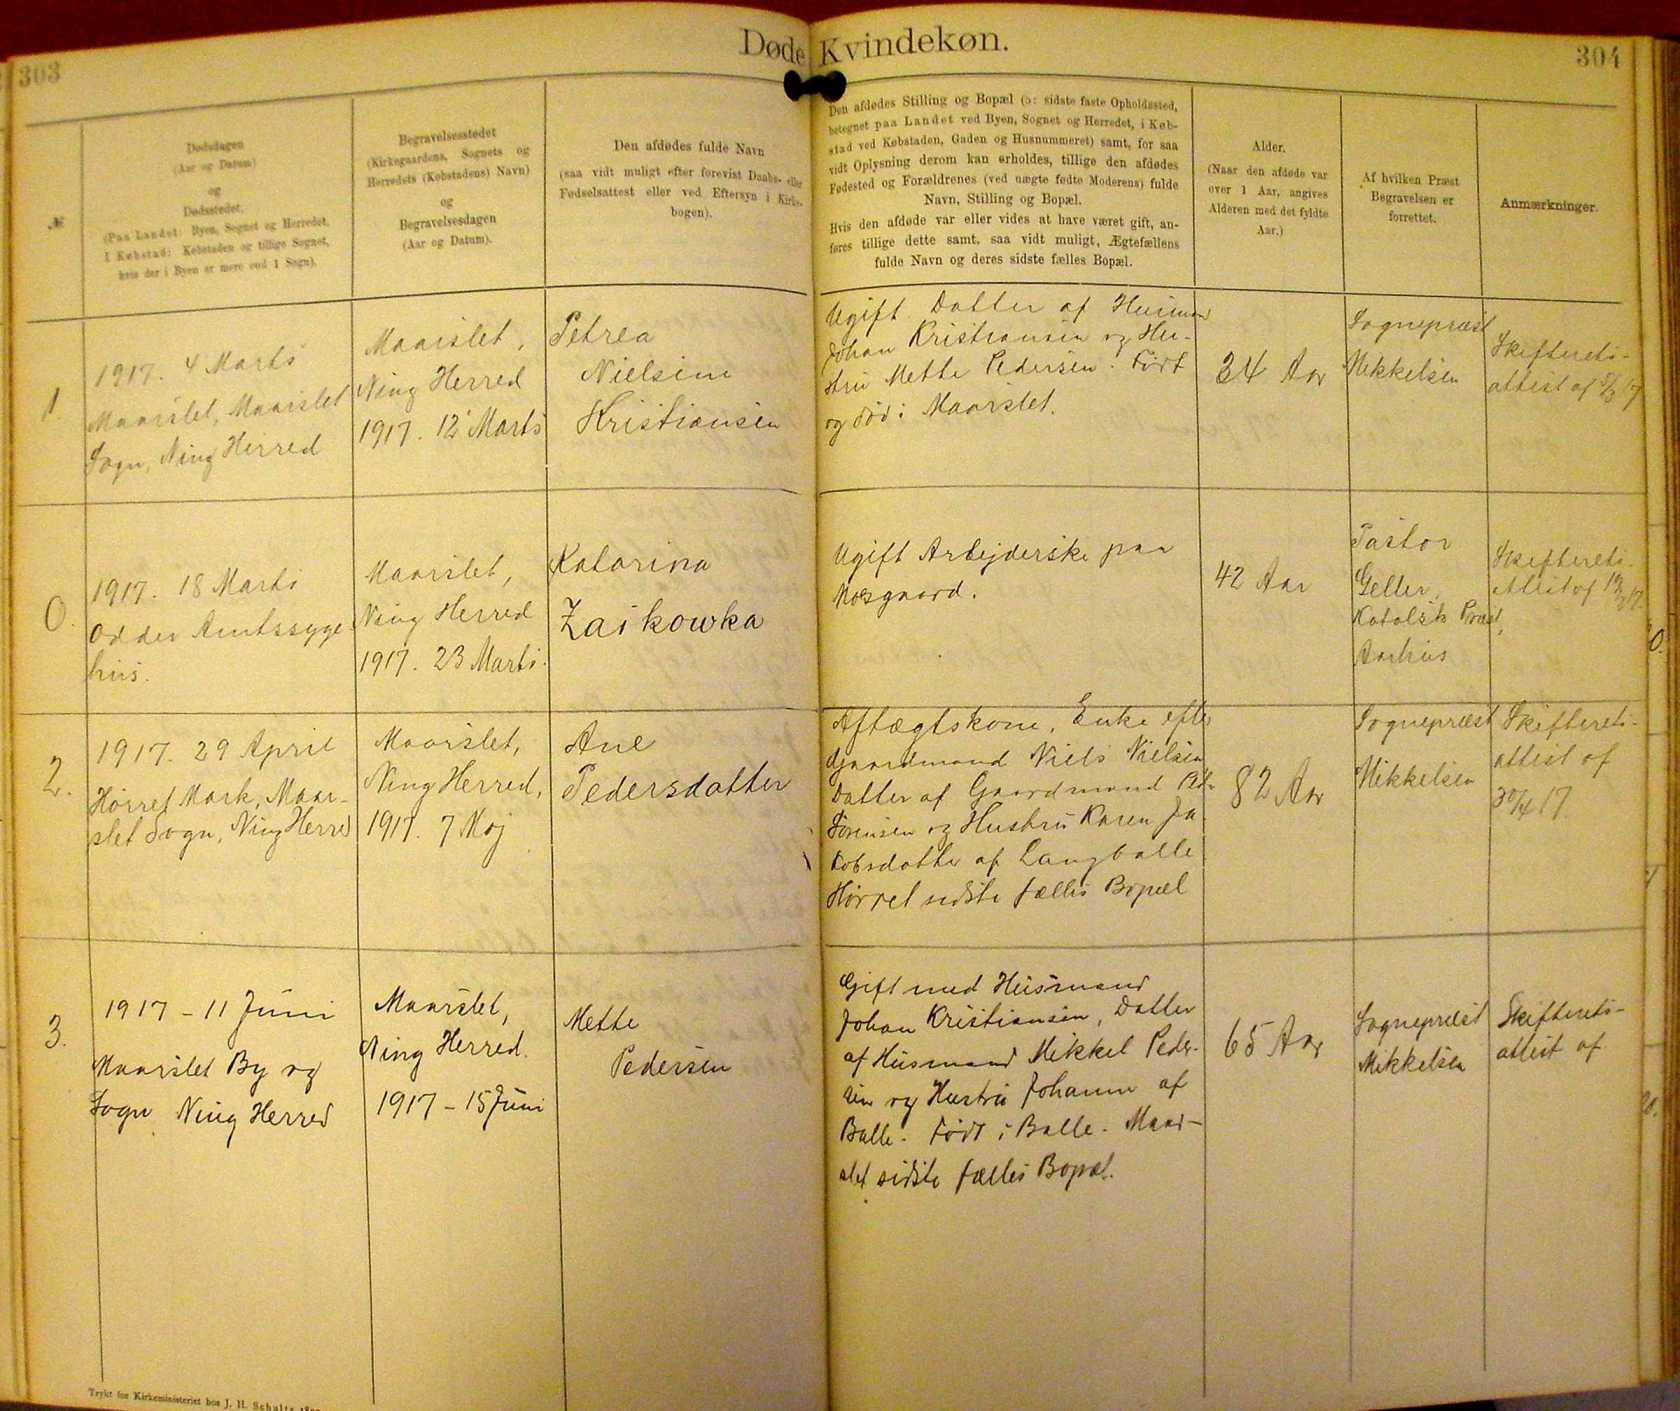 303
Døde Kvindekøn.
304
№
Dødsdagen
(Aar og Datum)
og
Dødsstedet.
(Paa Landet: Byen, Sognet og Herredet,
I Købstad: Købstaden og tillige Sognet,
hvis der i Byen er mere end 1 Sogn).
Begravelsesstedet
(Kirkegaardens, Sognets og
Herredets (Købstadens) Navn)
og
Begravelsesdagen
(Aar og Datum).
Den afdødes fulde Navn
(saa vidt muligt efter forevist Daabs- eller
Fødselsattest eller ved Eftersyn i Kirke-
bogen).
Den afdødes Stilling og Bopæl (ɔ: sidste faste Opholdssted,
betegnet paa Landet ved Byen, Sognet og Herredet, i Køb-
stad ved Købstaden, Gaden og Husnummeret) samt, for saa
vidt Oplysning derom kan erholdes, tillige den afdødes
Fødested og Forældrenes (ved uægte fødte Moderens) fulde
Navn, Stilling og Bopæl.
Hvis den afdøde var eller vides at have været gift, an-
føres tillige dette samt, saa vidt muligt, Ægtefællens
fulde Navn og deres sidste fælles Bopæl.
Alder.
(Naar den afdøde var
over 1 Aar, angives
Alderen med det fyldte
Aar.)
Af hvilken Præst
Begravelsen er
forrettet.
Anmærkninger.
1.
1917. 4 Marts
Maarslet, Maarslet
Sogn, Ning Herred
Maarslet,
Ning Herred
1917. 12 Marts
Petrea
Nielsine
Kristiansen
Ugift. Datter af Husmand
Johan Kristiansen og Hu-
stru Mette Pedersen. Født
og død i Maarslet.
34 Aar
Sognepræst
Mikkelsen
Skifterets-
attest af 5/3 17
0.
1917. 18 Marts
Odder Amtssyge-
hus.
Maarslet,
Ning Herred
1917. 23 Marts.
Katarina
Zaikowka
Ugift Arbejderske paa
Moesgaard.
42 Aar
Pastor
Geller,
Katolsk Præst,
Aarhus
Skifterets-
attest af 19/3 17.
2.
1917. 29 April
Hørret Mark, Maar-
slet Sogn, Ning Herred
Maarslet,
Ning Herred,
1917. 7 Maj
Ane
Pedersdatter
Aftægtskone, Enke efter
Gaardmand Niels Nielsen
Datter af Gaardmand Ped-
Sørensen og Hustru Karen Ja-
kobsdatter af Langballe
Hørret sidste fælles Bopæl
82 Aar
Sognepræst
Mikkelsen
Skifterets-
attest af
30/4 17.
3.
1917 - 11 Juni
Maarslet By og
Sogn Ning Herred
Maarslet,
Ning Herred.
1917 - 15 Juni
Mette
Pedersen
Gift med Husmand
Johan Kristiansen, Datter
af Husmand Mikkel Peder-
sen og Hustru Johanne af
Balle. Født i Balle. Maar-
slet sidste fælles Bopæl.
65 Aar
Sognepræst
Mikkelsen
Skifterets-
attest af
Trykt for Kirkeministeriet hos J. H. Schultz